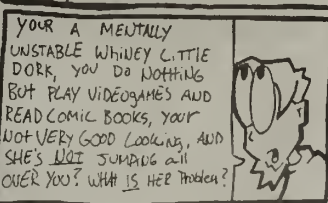 YOUR A MENTALLY
UNSTABLE WHiNEY LiTTlE
DORK, YOU DO NOTHiNG
BUT PLAY VidEOgAMES AND
READ COMiC BOOKS, YOUR
NOT VERY GOOD LOOKiNg, AND
SHE'S NOT JUMPiNG all
OVER YOU? WHAT IS HER PRoblem?